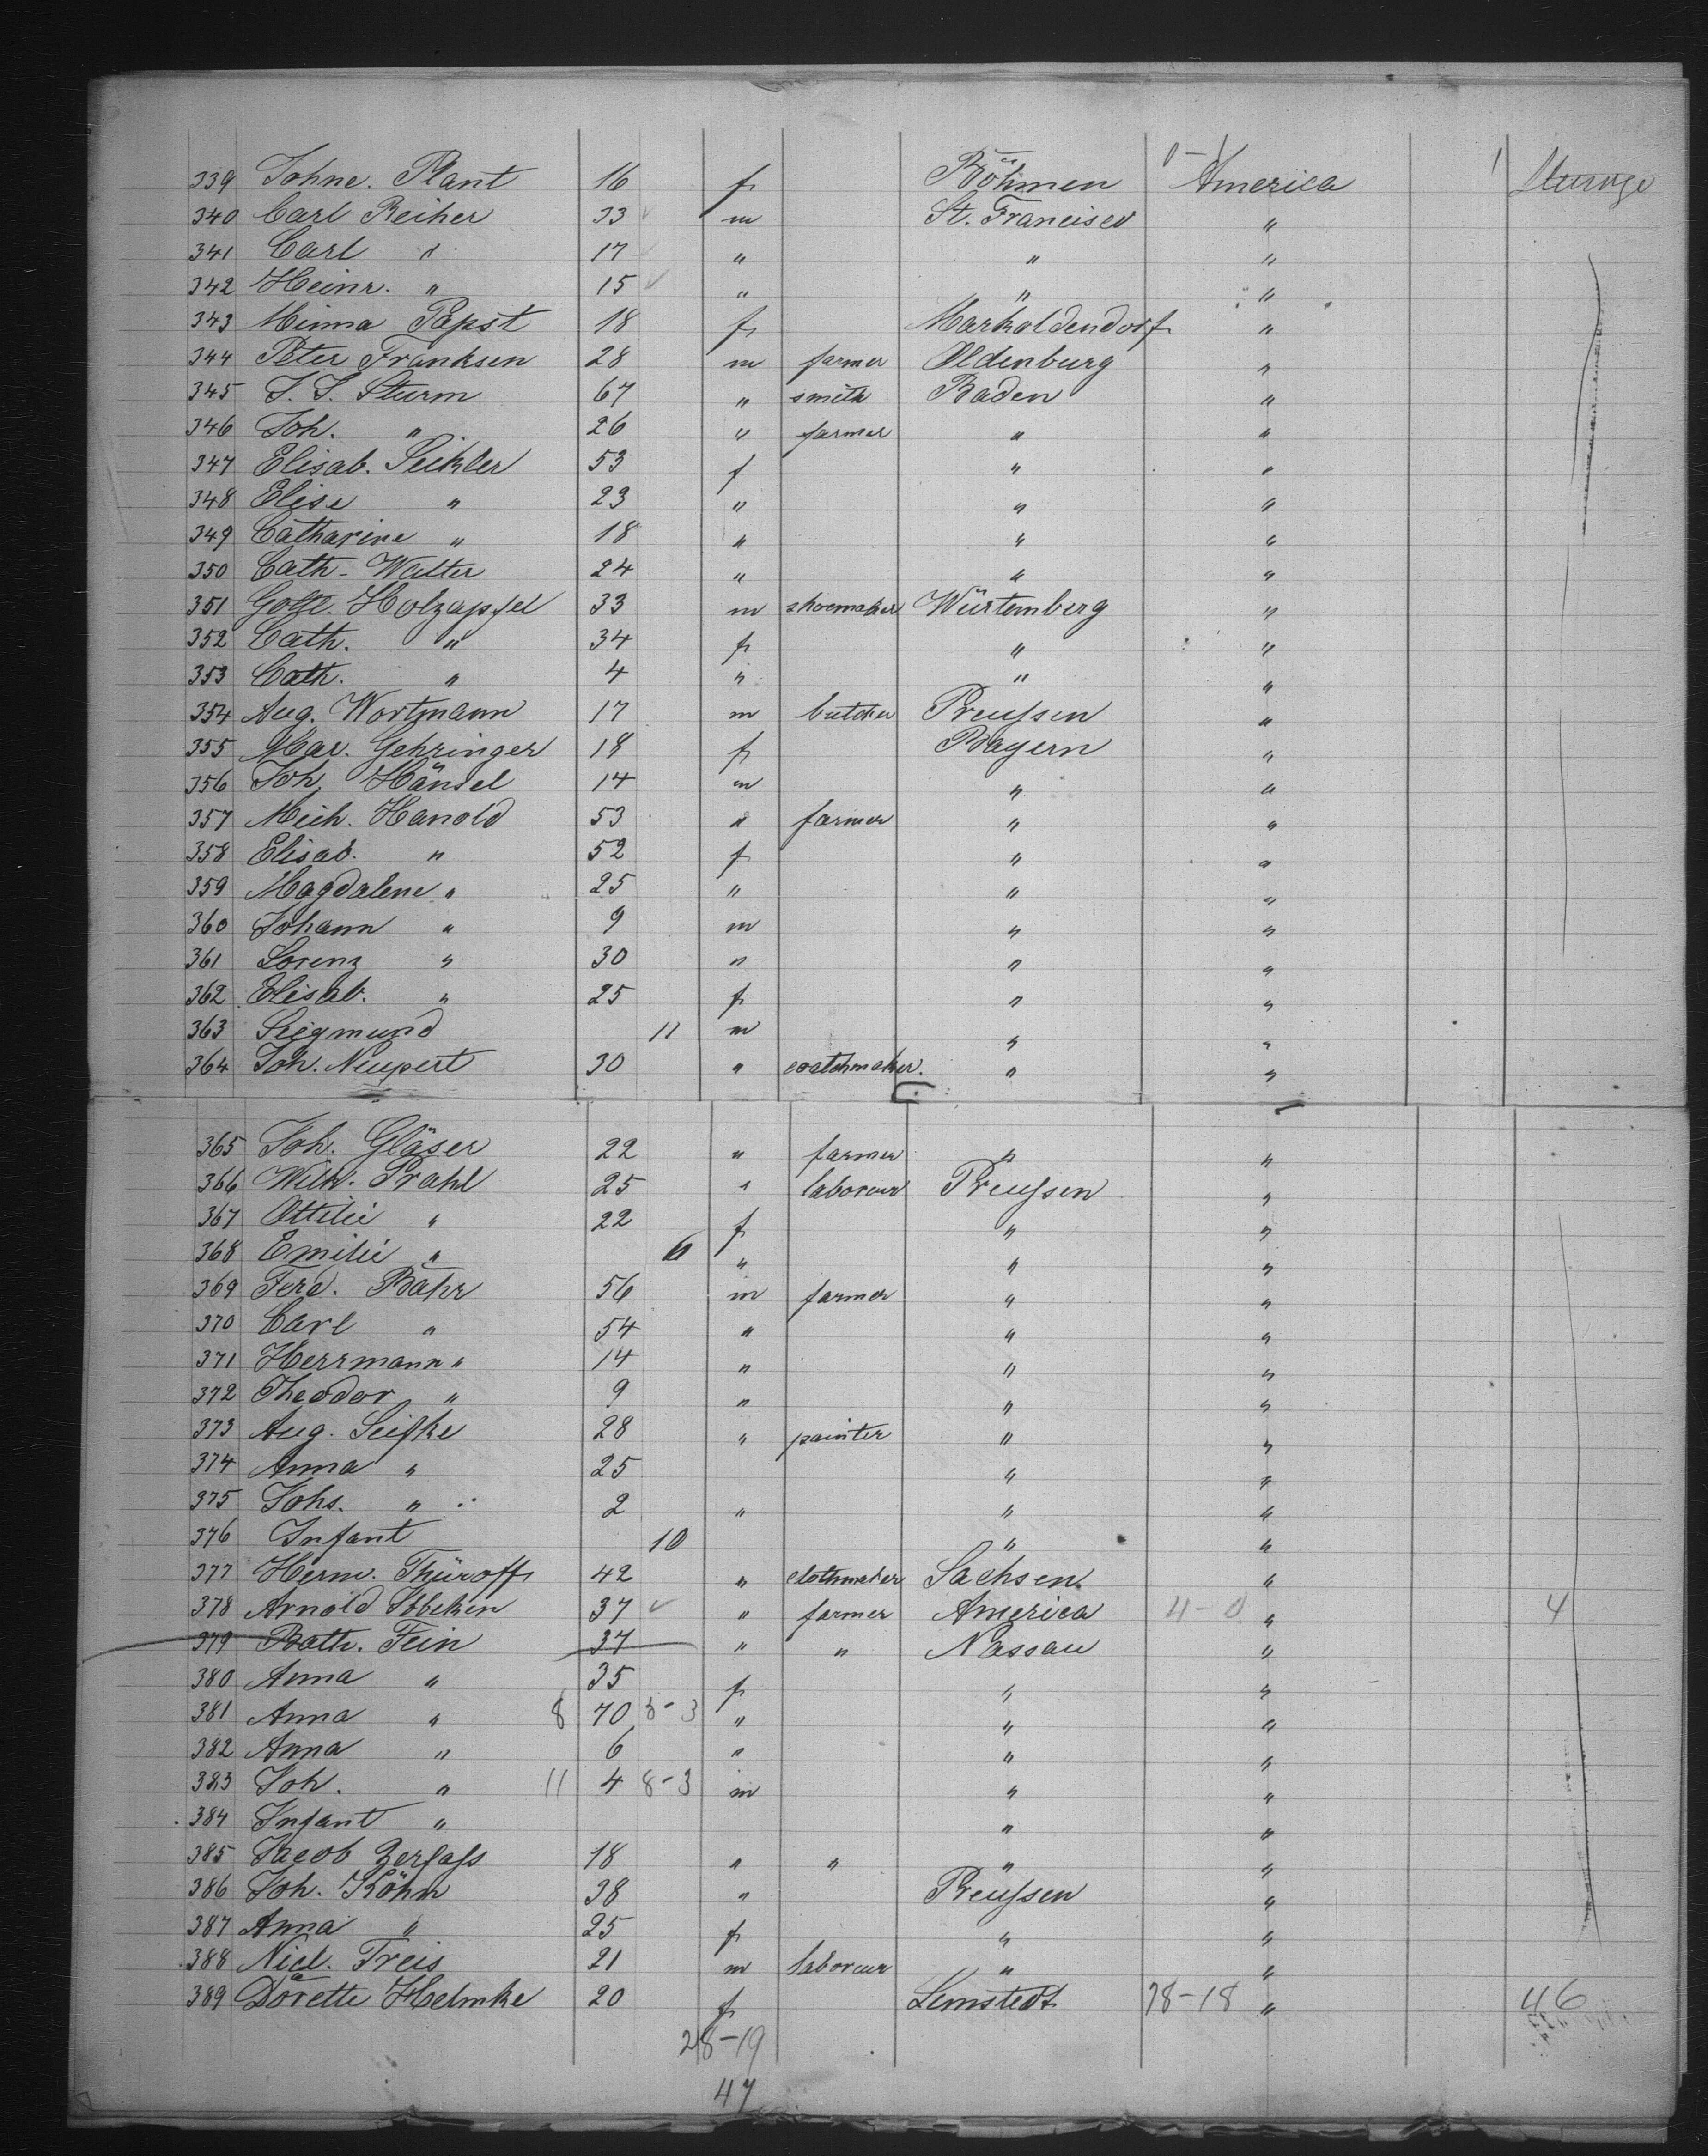 339 Johne. Plant 16 f Böhmen 0-1 America 1 Sturage
340 Carl Reiher 33 ✓ m St. Francisco "
341 Carl " 17 ✓ " " "
342 Heinr. " 15 ✓ " " "
343 Minna Papst 18 f Markoldendorf "
344 Peter Franksen 28 m farmer Oldenburg "
345 J. J. Sturm 67 " smith Baden "
346 Joh. " 26 " farmer " "
347 Elisab. 53 f " "
348 Elise " 23 " " "
349 Catharine " 18 " " "
350 Cath - Walter 24 " " "
351 Gottl. Holzapfel 33 m shoemaker Würtemberg "
352 Cath. " 34 f " "
353 Cath. " 4 " " "
354 Aug. Wortmann 17 m butcher Preußen "
355 Mar. Gehringer 18 f Bayern "
356 Joh. Hänsel 14 m " "
357 Mich. Hanold 53 " farmer " "
358 Elisab. " 52 f " "
359 Magdalene " 25 " " "
360 Johann " 9 m " "
361 Lorenz " 30 " " "
362 Elisab. " 25 f " "
363 Siegmund 11 m " "
364 Joh. Neupert 30 " watchmaker. " "
365 Joh. Gläser 22 " farmer " "
366 Wilh. Prahl 25 " laboreur Preußen "
367 Ottilie " 22 f " "
368 Emilie " 6 " " "
369 Ferd. Bahr 56 m farmer " "
370 Carl " 54 " " "
371 Herrmann " 14 " " "
372 Theodor " 9 " " "
373 Aug. Seifke 28 " painter " "
374 Anna " 25 " "
375 Johs. " 2 " " "
376 Infant 10 " "
377 Herm. Thüroff 42 " clothmaker Sachsen "
378 Arnold Ibbeken 37 ✓ " farmer America 4-0 " 4
379 Bath. Fein 37 " " Nassau "
380 Anna " 35 f " "
381 Anna " 8 70 8-3 " " "
382 Anna " 6 " " "
383 Joh. " 11 4 8-3 m " "
384 Infant " " "
385 Jacob Zerfaß 18 " " " "
386 Joh. Köhn 38 " Preußen "
387 Anna " 25 f " "
388 Nicl. Treis 21 m laboreur " "
389 Dorette Helmke 20 f Lemstedt 28-18 " 46
28-19
47